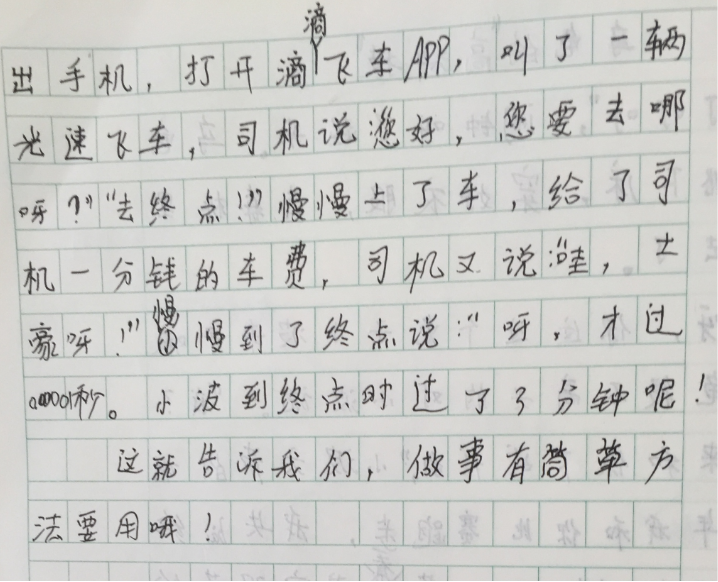 出手机，打开滴滴飞车APP，叫了一辆
光速飞车，司机说："您好，您要去哪
呀？""去终点！"慢慢上了车，给了司
机一分钱的车费，司机又说："哇，土
豪呀！"慢慢到了终点说："呀，才过
0.00001秒。小波到终点时过了3分钟呢！
这就告诉我们，做事有简单方
法要用哦！